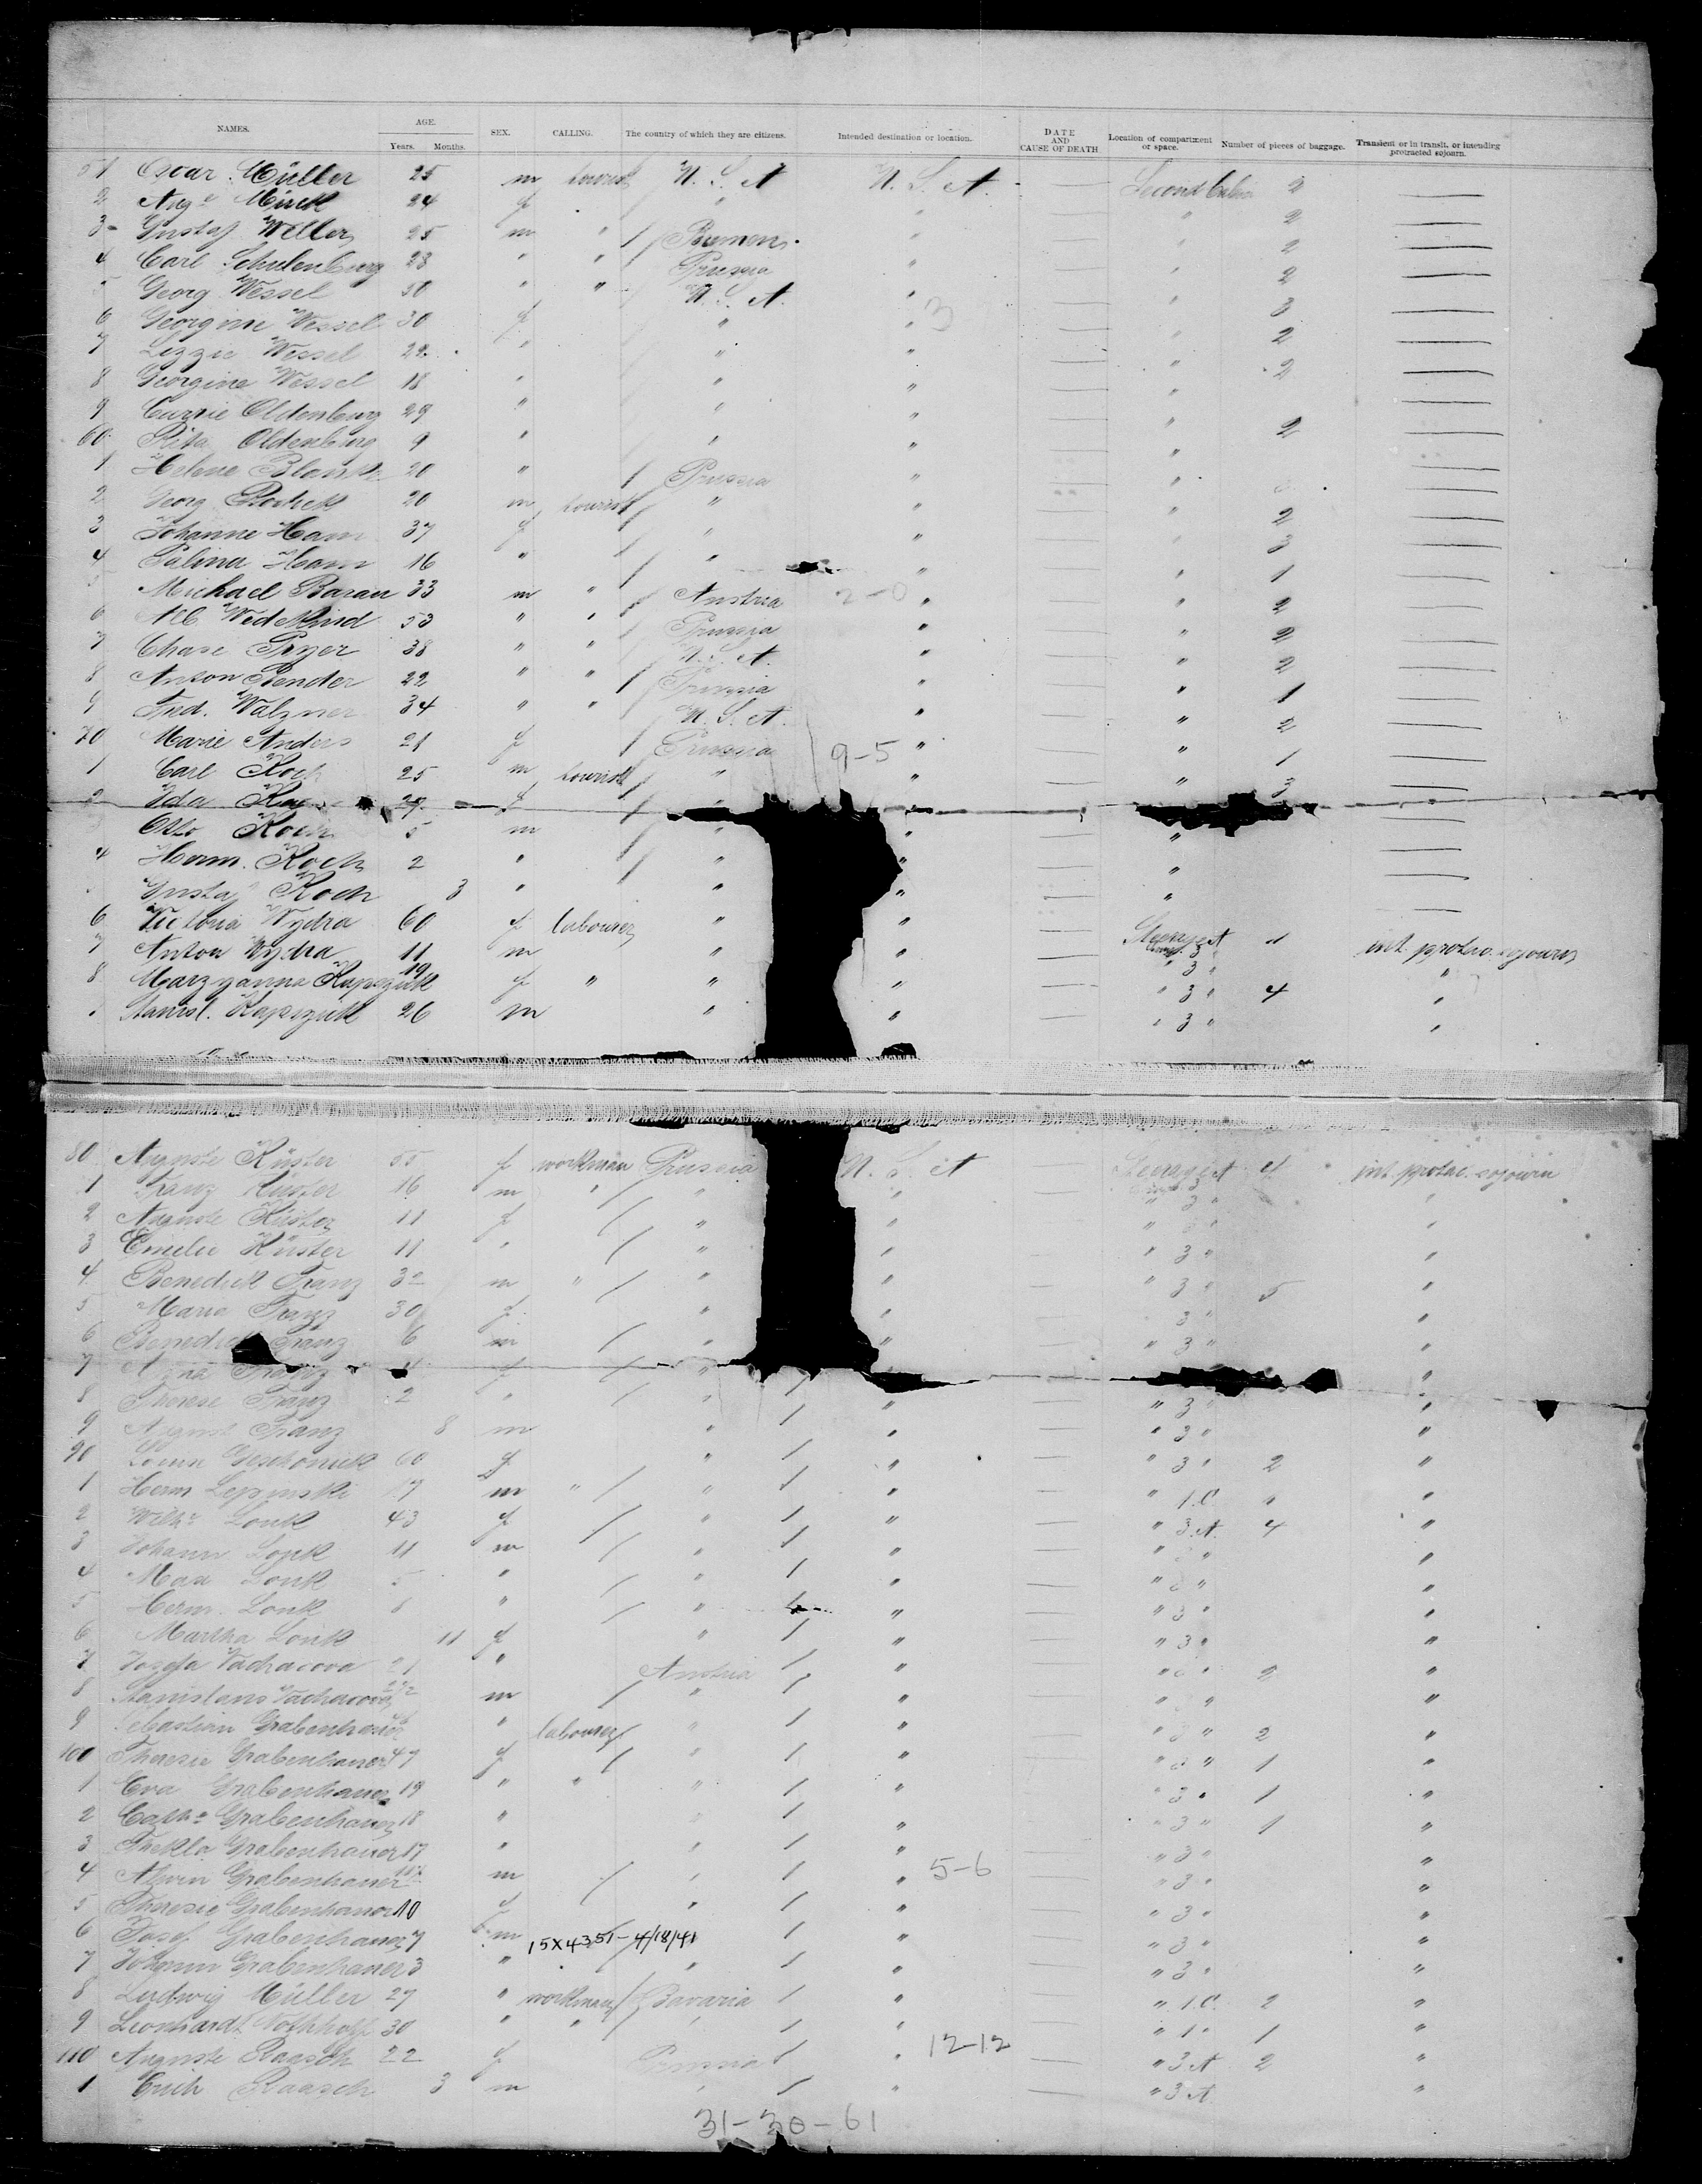 NAMES. AGE. Years. Months. SEX. CALLING. The country of which they are citizens. Intended destination or location. DATE AND CAUSE OF DEATH. Location of compartment or space. Number of pieces of baggage. Transient or in transit, or intending protracted sojourn.
51 Oscar Müller 25 m tourist U. S. A U. S. A. — Second Cabin 2 —
2 Aug. Mück 24 f " " — " 2 —
3 Gustaf Weller 25 m " Bremen " — " 2 —
4 Carl Schulenburg 23 " " Prussia " — " 2 —
Georg Wessel 30 " " U. S. A. " — " 3 —
6 Georgine Wessel 30 f " " 3 — " 2 —
7 Lizzie Wessel 22 " " " — " 2 —
8 Georgine Wessel 18 " " " — " —
9 Carrie Oldenburg 29 " " " — " 2 —
60 Rita Oldenburg 9 " " " — " —
1 Helene Blank 20 " Prussia " — " —
2 Georg 20 m tourist " " — " 2 —
3 Johanne Ham 37 f " " — " 3 —
4 Salina Ham 16 " " " — " 1 —
Michael Baran 33 m " Austria 2-0 " — " 2 —
6 Alb. Wedekind 53 " " Prussia " — " 2 —
7 Chase Pryer 38 " " U. S. A. " — " 2 —
8 Anton Bender 22 " " Prussia " — " 1 —
9 Fred. Walzner 34 " " U. S. A. " — " 2 —
70 Marie Anders 21 f Prussia 9-5 " — " 1 —
1 Carl Koch 25 m tourist " " — " 3 —
2 Ida 27 f " —
Otto Koch 5 m " " — " —
4 Herm. Koch 2 " " " — " —
Gustaf Koch 3 " " " — " —
6 Victoria Wydra 60 f labourer " " — Steerage A 1 int. protac. sojourn
7 Anton Wydra 11 m " " — " 3 " "
8 Marzyanna Kapczuk 19 f " " " — " 3 " 4 "
Stanisl. Kapczuk 26 m " " — " 3 " "
80 Auguste Küster 55 f workman Prussia U. S. A — Steerage A 4 int. protac. sojourn
1 Franz Küster 16 m " " " — " 3 " "
2 Auguste Küster 11 f " " — " 3 " "
3 Emelie Küster 11 " " " — " 3 " "
4 Benedict Franz 32 m " " " — " 3 " 5 "
5 Maria Franz 30 f " " — 3 " "
6 Benedict Franz 6 m " " — " 3 " "
7 Anna Franz 4 f " "
8 Therese Franz 2 " " " — " 3 " "
9 August Franz 8 m " " — " 3 " "
90 Louise Geschonick 60 f " " — " 3 " 2 "
1 Herm Lepinski m " " " — " 1.C. "
2 Wilh. Lonk 43 f " " — " 3.A. 4 "
3 Johann Lonk 11 m " " — " 3 " "
4 Max Lonk 5 " " " — " 3 " "
5 Herm. Lonk 8 " " " — " 3 " "
6 Martha Lonk 11 f " " — " 3 " "
7 Josefa Vachacova 21 " Austria " — " 3 " 2 "
8 Stanislaus Vachacova m " " — " 3 " "
9 Sebastian Grabenhauer " labourer " " — " 3 " 2 "
100 Theresie Grabenhauer 47 f " " — " 3 " 1 "
1 Eva Grabenhauer 19 " " " " — " 3 " 1 "
2 Cath. Grabenhauer 18 " " " — " 3 " 1 "
3 Thekla Grabenhauer 17 " " " — " 3 " "
4 Alwin Grabenhauer 11 m " " 5-6 — " 3 " "
5 Theresie Grabenhauer 10 f " " — " 3 " "
6 Josef Grabenhauer 7 m 15X4351-4/18/41 " — " 3 " "
7 Johann Grabenhauer 3 " " " — " 3 " "
8 Ludwig Müller 27 " workman Bavaria " — " 1.C. 2 "
9 Leonhardt 30 " " " " — " 1 " 1 "
110 Auguste Raasch 22 f Prussia " 12-12 — " 3 A 2 "
1 Erich Raasch 3 m " " — " 3 A "
31-30-61